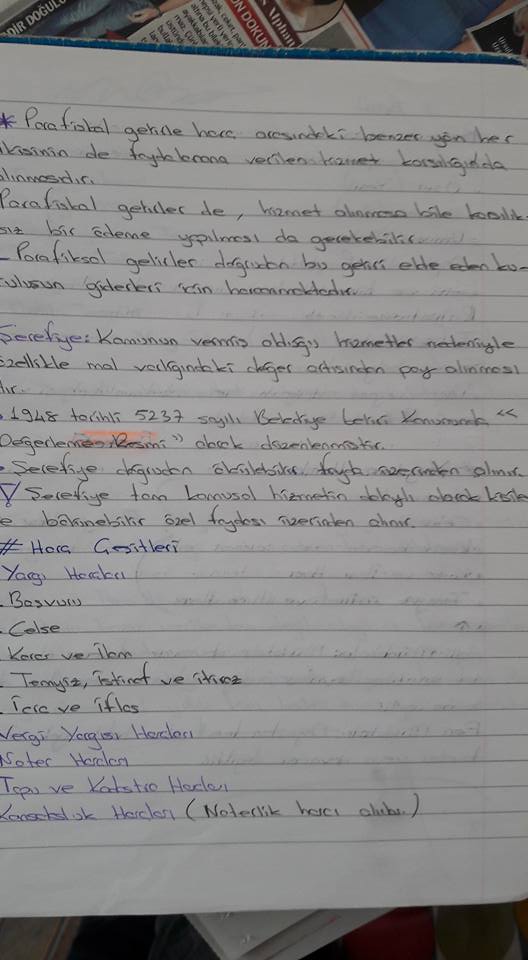 DİR DOĞULU
N DOKUN
* Parafiskal gelirle harç arasındaki benzer yön her
ikisinin de faydalanana verilen hizmet karşılığıda
alınmasıdır.
Parafiskal gelirler de, hizmet alınmasa bile karşılık
sız bir ödeme yapılması da gerekebilir.
- Parafiksal gelirler doğrudan bu geliri elde eden ku-
ruluşun giderleri için harcanmaktadır.
Şerefiye: Kamunun vermiş olduğu hizmetler nedeniyle
özellikle mal varlığındaki değer artışından pay alınması
dır.
. 1948 tarihli 5237 sayılı Belediye Geliri Kanununda "
Değerlenme Resmi" olarak düzenlenmiştir.
. Şerefiye doğrudan ölçülebilir fayda üzerinden alınır.
! Şerefiye tam kamusal hizmetin dolaylı olarak kişile
e bölünebilir özel faydası üzerinden alınır.
# Harç Çeşitleri
Yargı Harçları
. Başvuru
. Celse
. Karar ve İlam
. Temyiz, İstinaf ve itiraz
. İcra ve İflas
Vergi Yargısı Harçları
Noter Harçları
Tapu ve Kadastro Harçları
Konsolosluk Harçları (Noterlik harcı alınır.)